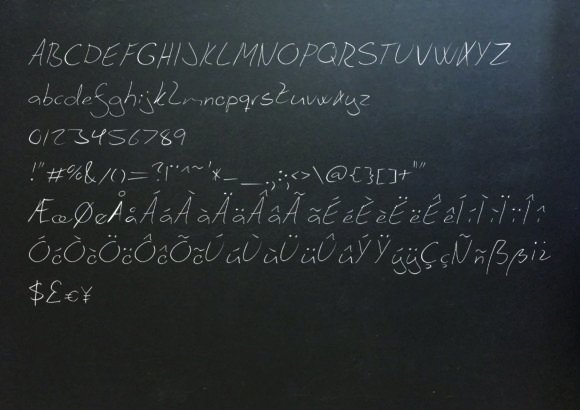 ABCDEFGHIJKLMNOPQRSTUVWXYZ
abcdefghijklmnopqrstuvwxyz
0123456789
!"#%&/()=?|¨¨^~'*_—.,:;<>\@{}[]+""
ÆæØøÅåÁáÀàÄäÂâÃãÉéÈèËëÊêÍíÌìÏïÎî
ÓóÒòÖöÔôÕõÚúÙùÜüÛûÝŸýÿÇçÑñßβ¡¿
$£€¥